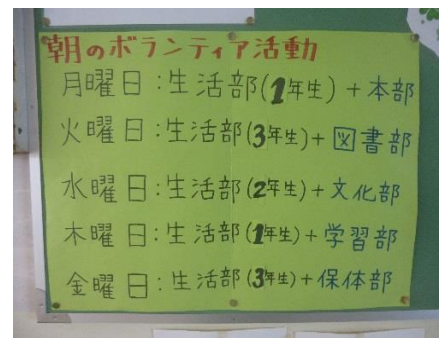 朝のボランティア活動
月曜日:生活部(1年生)+本部
火曜日:生活部(3年生)+図書部
水曜日:生活部(2年生)+文化部
木曜日:生活部(1年生)+学習部
金曜日:生活部(3年生)+保体部